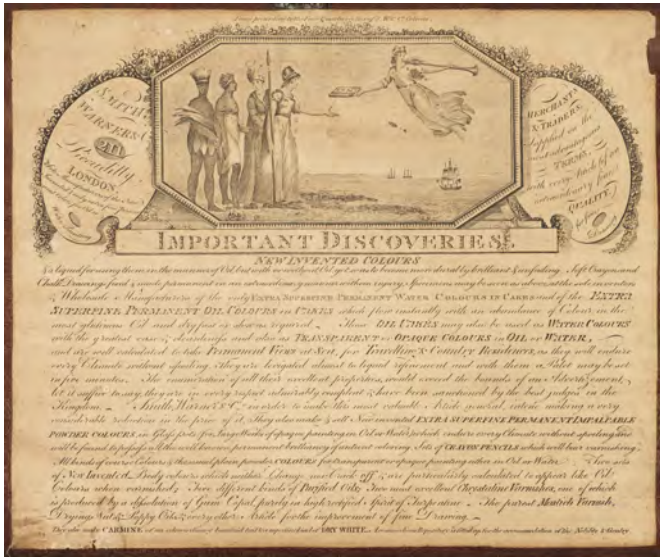 SMITH
WARNER & Co
211
Piccadilly
LONDON,
MERCHANTS
& TRADERS,
Supplied on the
most advantageous
TERMS,
with every Article of an
extraordinary fine
QUALITY
for fine
Drawing
IMPORTANT DISCOVERIES
NEW INVENTED COLOURS
& a liquid for using them in the manner of Oil, but with or without Oil yet so as to become more durable, brilliant & unfading. Soft Crayons and
Chalk Drawings fixed & made permanent in an extraordinary manner without injury. Specimens may be seen as above, at the sole inventors
& Wholesale Manufacturers of the only EXTRA SUPERFINE PERMANENT WATER COLOURS IN CAKES and of the EXTRA
SUPERFINE PERMANENT OIL COLOURS IN CAKES which flow instantly with an abundance of Colour in the
most glutinous Oil and dry fast as above required. These OIL CAKES may also be used as WATER COLOURS
with the greatest ease & cleanliness and also as TRANSPARENT or OPAQUE COLOURS in OIL or WATER,
and are well calculated to take Permanent Views at Sea, for Travelling & Country Residences, as they will endure
every Climate without spoiling. They are levigated almost to liquid refinement and with them a Palet may be set
in five minutes. The enumeration of all their excellent properties, would exceed the bounds of an Advertisement,
let it suffice to say, they are in every respect admirably compleat & have been sanctioned by the best judges in the
Kingdom. Smith, Warner & Co. in order to make this most valuable Article general, intend making a very
considerable reduction in the price of it. They also make & sell New invented EXTRA SUPERFINE PERMANENT IMPALPABLE
POWDER COLOURS, in Glass pots for large Works of opaque painting in Oil or Water, which endure every Climate without spoiling and
will be found to possess all the well known permanent brilliancy of natural colouring. Sets of CRAYON PENCILS which will bear
All kinds of coarse Colours & thousand places powder COLOURS for transparent or opaque painting either in Oil or Water.
of New Invented Body colours which neither Change nor Crack off & are particularly calculated to appear like Oil
Colours when varnished; Two different kinds of Purified Oils; Two most excellent Chrystaline Varnishes, one of which
is produced by a dissolution of Gum Copal, purely in high rectified Spirit of Turpentine. The purest Mastich Varnish,
Drying Nut & Poppy Oils & every other Article for the improvement of fine Drawing.
They also make CARMINE of an extraordinary beautiful tint & a superfine kind of DRY WHITE. for the accommodation of the Nobility & Gentry